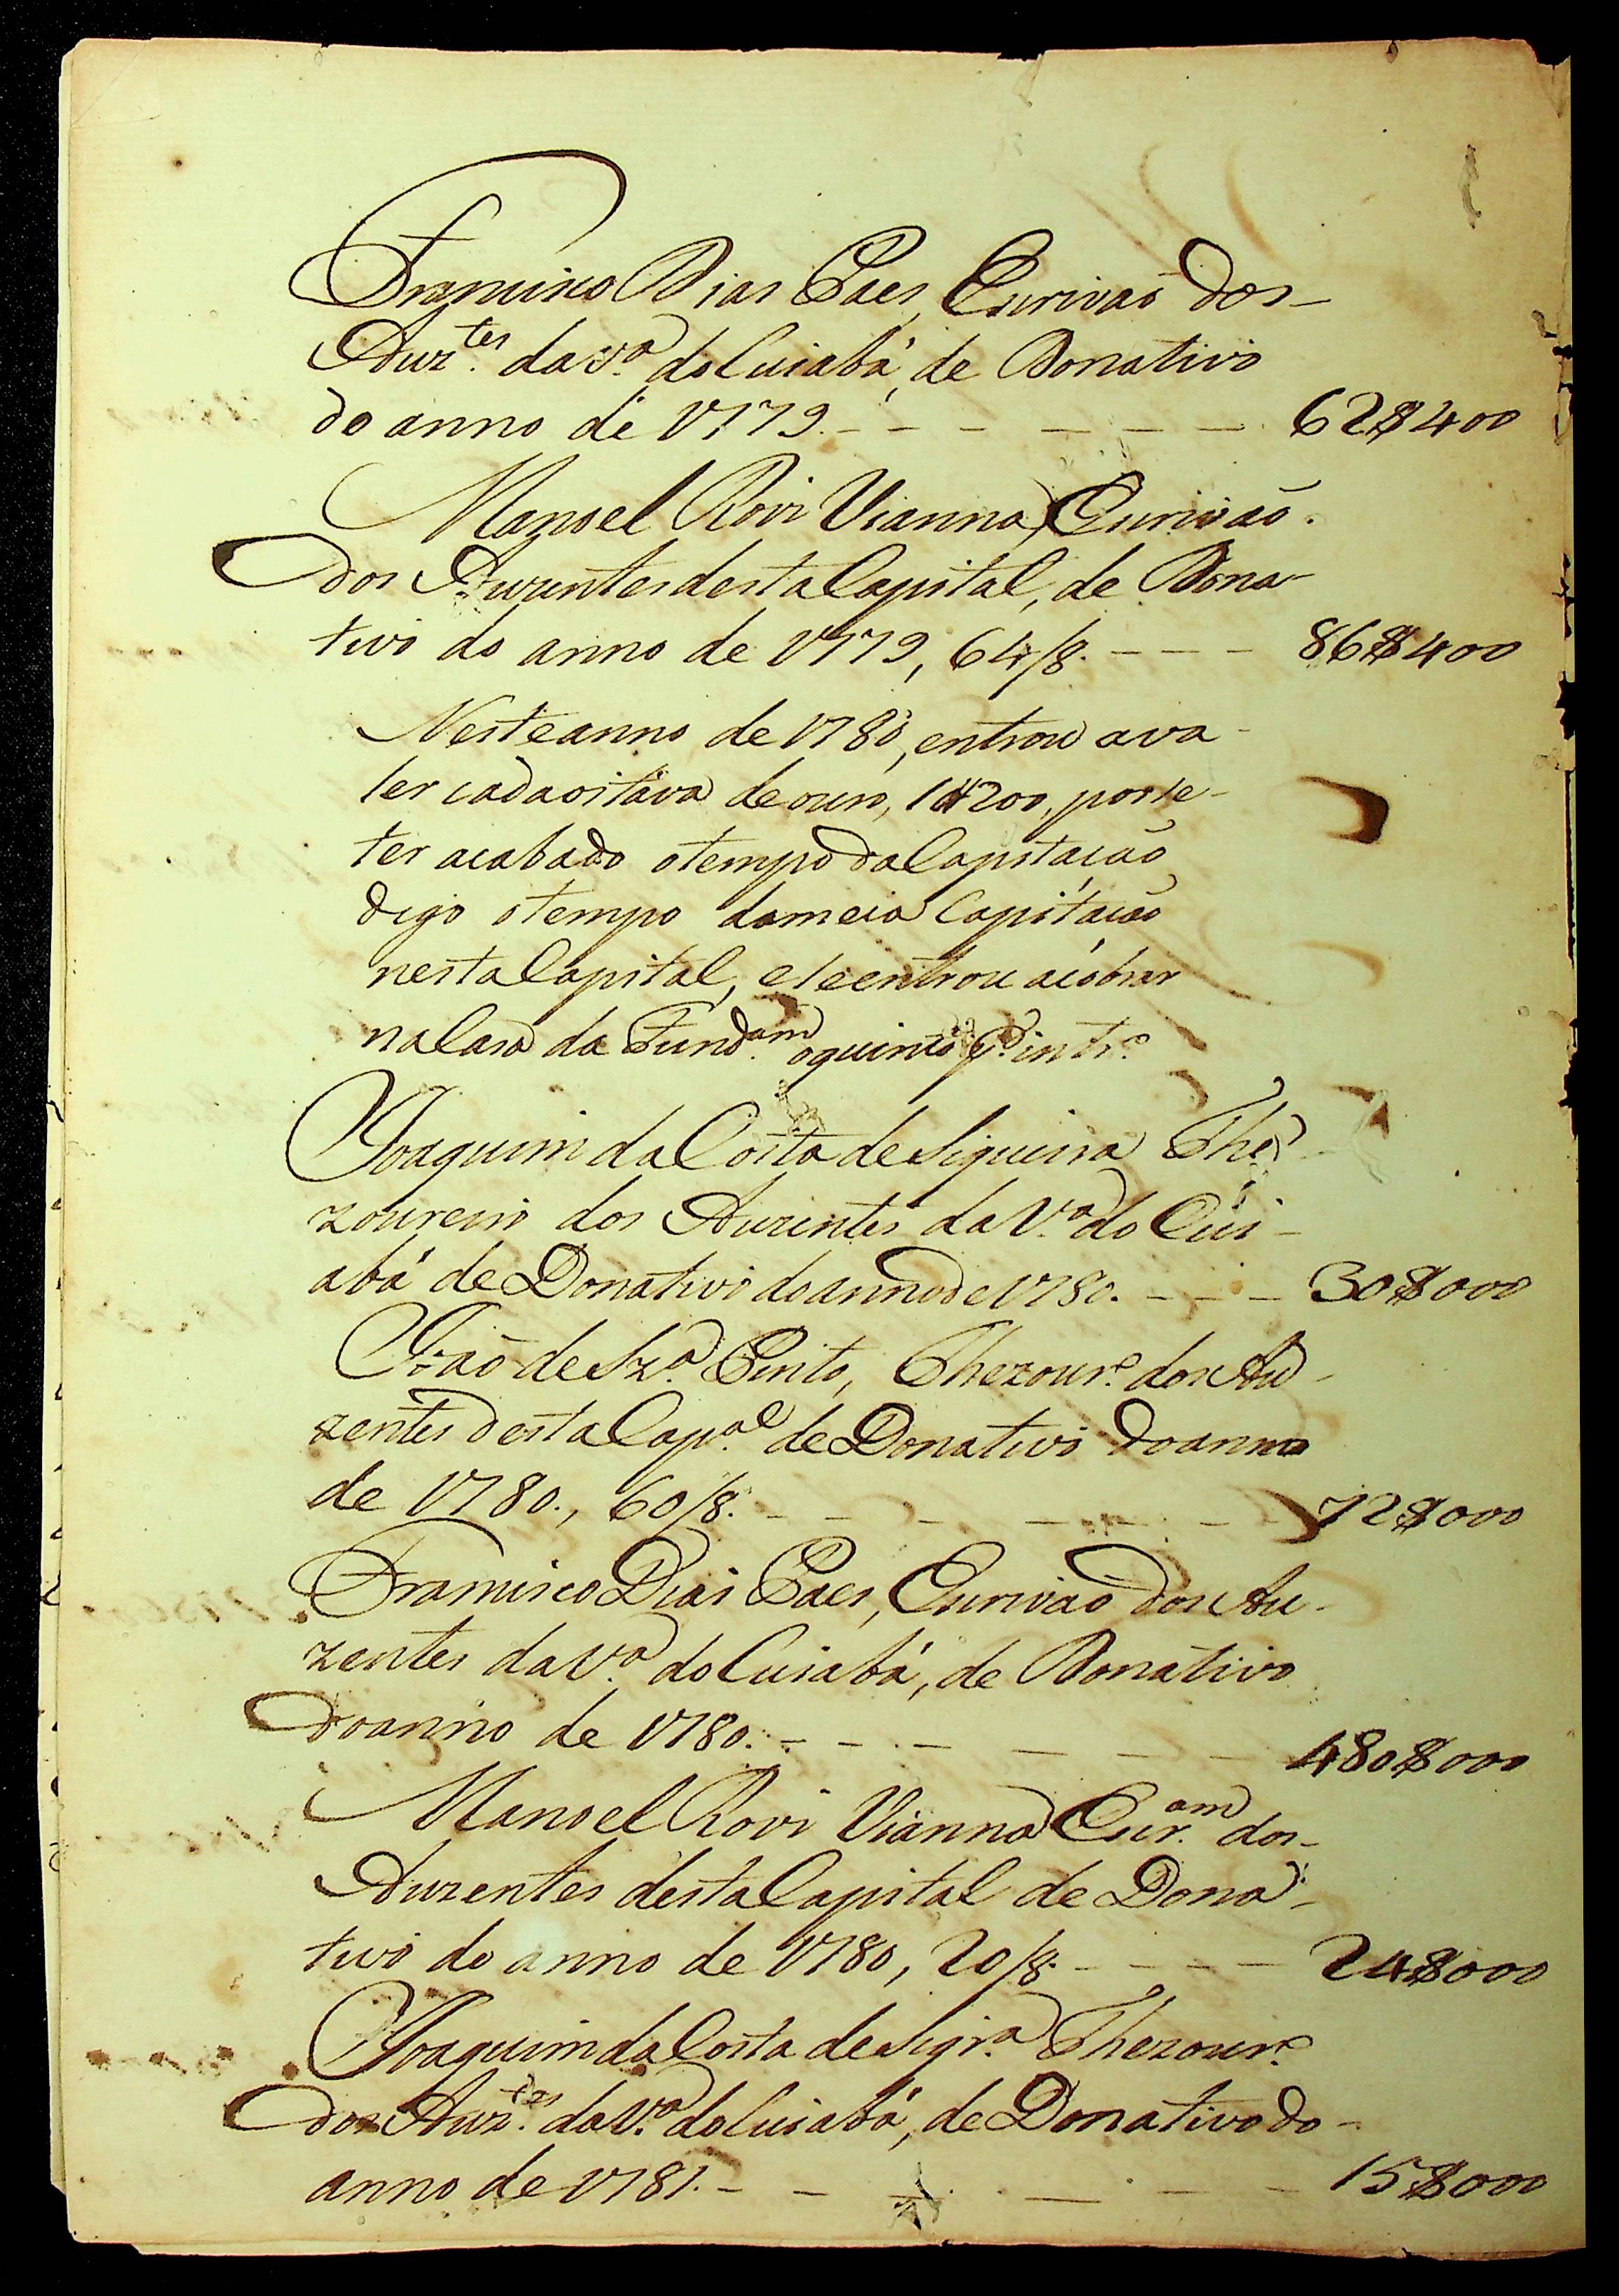 Francisco Dias Paes, Escrivaõ dos
Auz.tes da V.a do Cuiabá, de Donativo
do anno de 1779. - - - - - - 62$400
Manoel Roiz Vianna, Escrivaõ
dos Auzentes desta Capital, de Dona-
tivo do anno de 1779, 64/8. - - - 86$400
Neste anno de 1780, entrou a va-
ler cada oitava de ouro, 1$200, por se
ter acabado o tempo da Capitaçaõ,
digo o tempo da meia Capitaçaõ
nesta Capital, e se entrou a cobrar
na Casa da Fund.am o quinto p.r intr.o
Joaquim da Costa de Siqueira The-
zoureiro dos Auzentes da V.a do Cui-
abá de Donativo do anno de 1780. - - - 30$000
Joaõ de Sz.a Pinto, Thezour.o dos Au-
zentes desta Cap.al de Donativo do anno
de 1780., 60/8. - - - - - - 72$000
Francisco Dias Paes, Escrivaõ dos Au-
zentes da V.a do Cuiabá, de Donativo
do anno de 1780. - - - - - - 480$000
Manoel Roiz Vianna Escr.am dos
Auzentes desta Capital de Dona-
tivo do anno de 1780, 20/8. - - - - 24$000
Joaquim da Costa de Siqr.a Thezour.o
dos Auz.tes da V.a do Cuiabá, de Donativo do
anno de 1781. - - - - - - 15$000